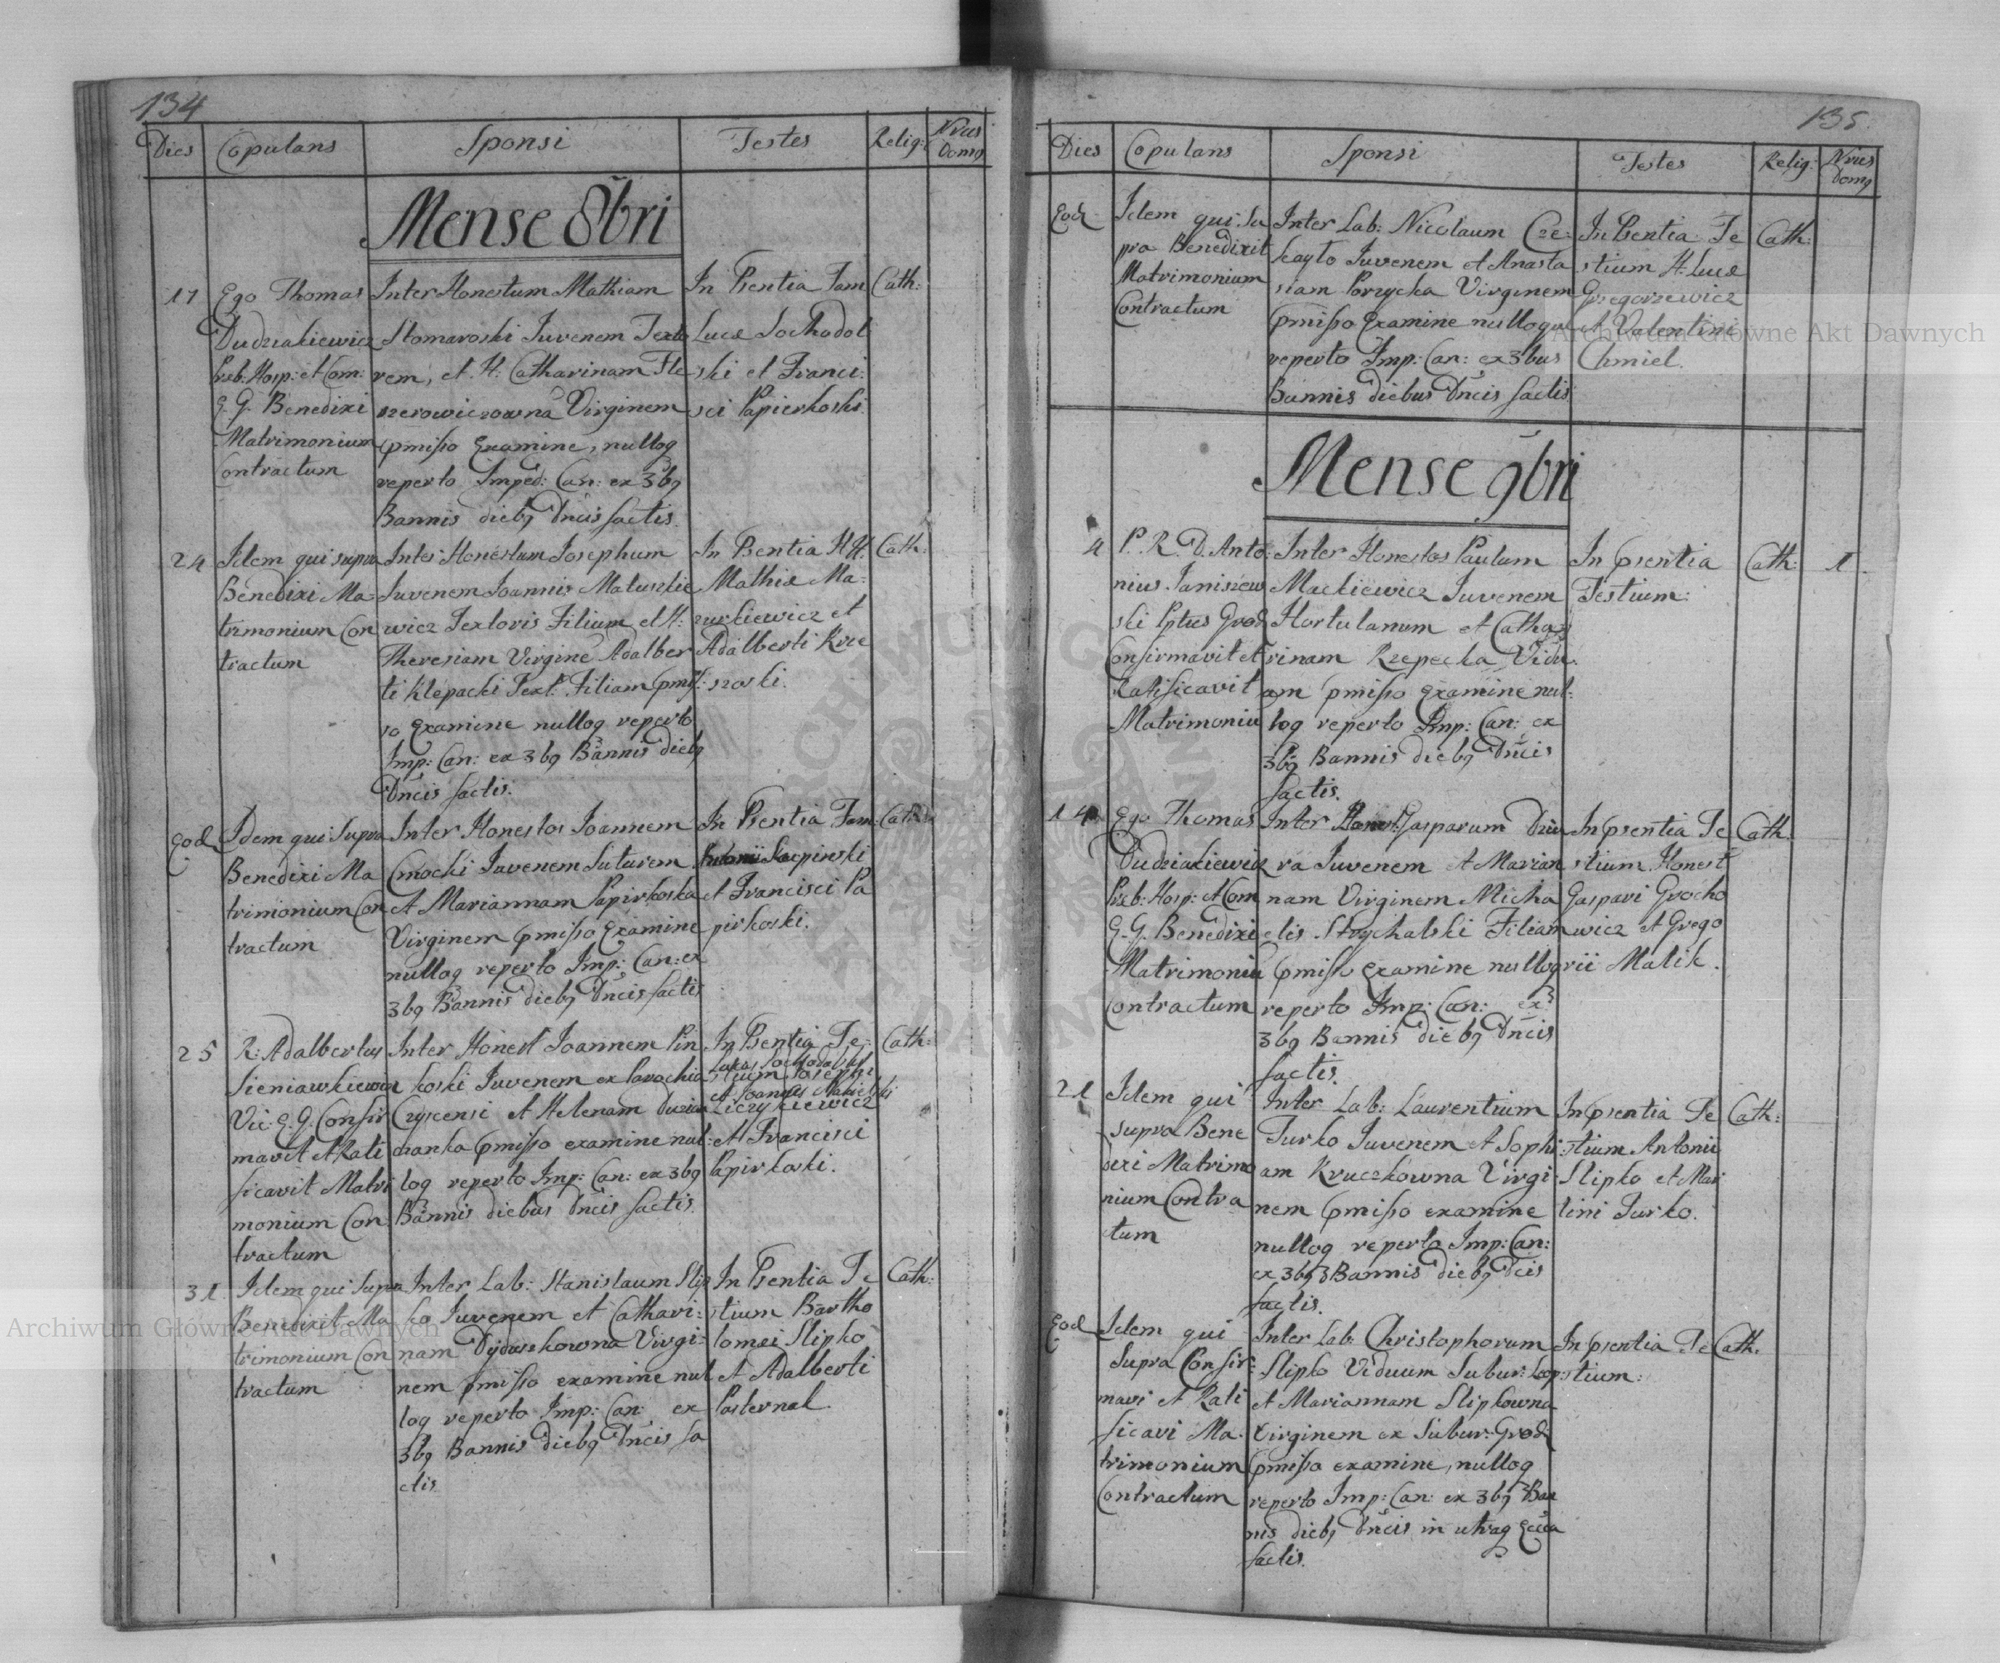 134
Dies Copulans Sponsi Testes Relig: Nrus Domq
Mense 8bri
17
Ego Thomas
Dudziakiewicz
Præb: Hosp: et Com:
G. G. Benedixi
Matrimonium
Contractum
Inter Honestum Mathiam
Stomaroski Juvenem Texto
rem, et H. Catharinam Fle
szerowiczowna Virginem
pmisso Examine, nulloq
reperto Imped: Can: ex 3bq
Bannis diebq Dncis factis.
In Psentia Fam
Lucæ Sochodol
ski et Franci:
sci Papierkoski.
Cath:
24
Idem qui supra
Benedixi Ma:
trimonium Con
tractum
Inter Honestum Josephum
Juvenem Joannis Matuszkie
wicz Textoris Filium et H:
Theresiam Virginē Adalber
ti Klepacki Text: Filiam pmis:
so Examine nulloq reperto
Imp: Can: ex 3bq Bannis diebq
Dncis factis.
In Psentia H.H.
Mathiæ Ma:
zurkiewicz et
Adalberti Krze
szoski.
Cath:
Eod
Idem qui Supra
Benedixi Ma
trimonium Con
tractum
Inter Honestos Joannem
Cmocki Juvenem Sutorem
et Mariannam Papirkoska
Virginem pmisso Examine
nulloq reperto Imp: Can: ex
3bq Bannis diebq Dncis factis
In Psentia Fam:
et Francisci Pa
pirkoski.
Cath:
25
R: Adalbertus
Sieniawkiewicz
Vic: G. G. Confir
mavit et Rati
ficavit Matri
monium Con
tractum
Inter Honest Joannem Pin
koski Juvenem ex Parochia
Czyscensi et Helenam Duzia
dzanka pmisso examine nul:
loq reperto Imp: Can: ex 3bq
Bannis diebus Dncis factis.
In Psentia Te:
stium Josephi
Liczykiewicz
et Francisci
Papirkoski.
Cath:
31.
Idem qui Supra
Benedixit Ma
trimonium Con
tractum
Inter Lab: Stanislaum Slip
ko Juvenem et Cathari:
nam Dyduszkowna Virgi:
nem pmisso examine nul
loq reperto Imp: Can: ex
3bq Bannis diebq Dncis fa
ctis
In Psentia Te
stium Bartho
lomei Slipko
et Adalberti
Pasternak.
Cath:
135.
Dies Copulans Sponsi Testes Relig: Nrus Domq
Eod
Idem qui Su
pra Benedixit
Matrimonium
Contractum
Inter Lab: Nicolaum Cze:
kayło Juvenem et Anasta
siam Porzycka Virginem
pmisso Examine nulloque
reperto Imp: Can: ex 3bus
Bannis diebus Dncis factis
In Psentia Te
stium H: Lucæ
Grzegorzewicz
et Valentini
Chmiel.
Cath:
Mense 9bri
4
P. R. D. Anto:
nius Janiszew
ski Pptus Grod
Confirmavit et
Ratificavit
Matrimoniū
Inter Honestos Paulum
Mackiewicz Juvenem
Hortulanum et Catha
rinam Rzepecka Vidu:
am pmisso Examine nul:
loq reperto Imp: Can: ex
3bq Bannis diebq Dncis
factis.
In psentia
Testium:
Cath:
1.
14
Ego Thomas
Dudziakiewicz
Præb: Hosp: et Com
G. G. Benedixi
Matrimoniū
Contractum
Inter Honest: Gasparum Dziu
ra Juvenem et Marian
nam Virginem Micha
elis Strychalski Filiam
pmisso Examine nulloq
reperto Imp: Can: ex
3bq Bannis diebq Dncis
factis.
In psentia Te
stium Honest
Gaspari Grocho
wicz et Grego
rii Malik.
Cath:
21
Idem qui
supra Bene
dixi Matrimo
nium Contra
ctum
Inter Lab: Laurentium
Jurko Juvenem et Sophi:
am Kruczkowna Virgi:
nem pmisso examine
nulloq reperto Imp: Can:
ex 3bq Bannis diebq Dcis
factis.
In psentia Te
stium Antonii
Slipko et Mar
tini Jurko.
Cath:
Eod
Idem qui
Supra Confir:
mavi et Rati
ficavi Ma:
trimonium
Contractum
Inter Lab: Christophorum
Slipko Viduum Subur: Leop:
et Mariannam Slipkowna
Virginem ex Subur: Grod
pmisso examine, nulloq
reperto Imp: Can: ex 3bq Ban
nis diebq Dncis in utraq Eccla
factis.
In psentia Te
stium:
Cath.
Archiwum Główne Akt Dawnych
Archiwum Główne Akt Dawnych